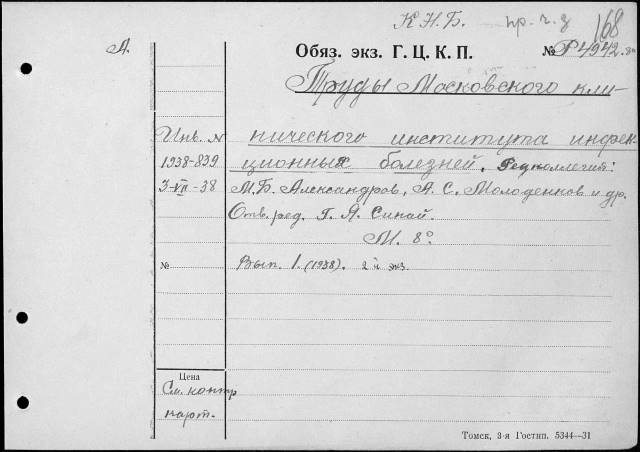 К.Н.Б. пр. ч. з 168
А.
Обяз. экз. Г. Ц. К. П. № Р4942
Труды Московского кли-
Инв. N нического института инфек-
1938-839 ционных болезней. Редколлегия:
3-VII-38 М.Б. Александров, А. С. Молоденков и др.
Отв. ред. Г. Я. Синай.
М. 8°
№ Вып. 1. (1938). 2й экз.
Цена
См. контр
карт.
Томск, 3-я Гостип. 5344—31